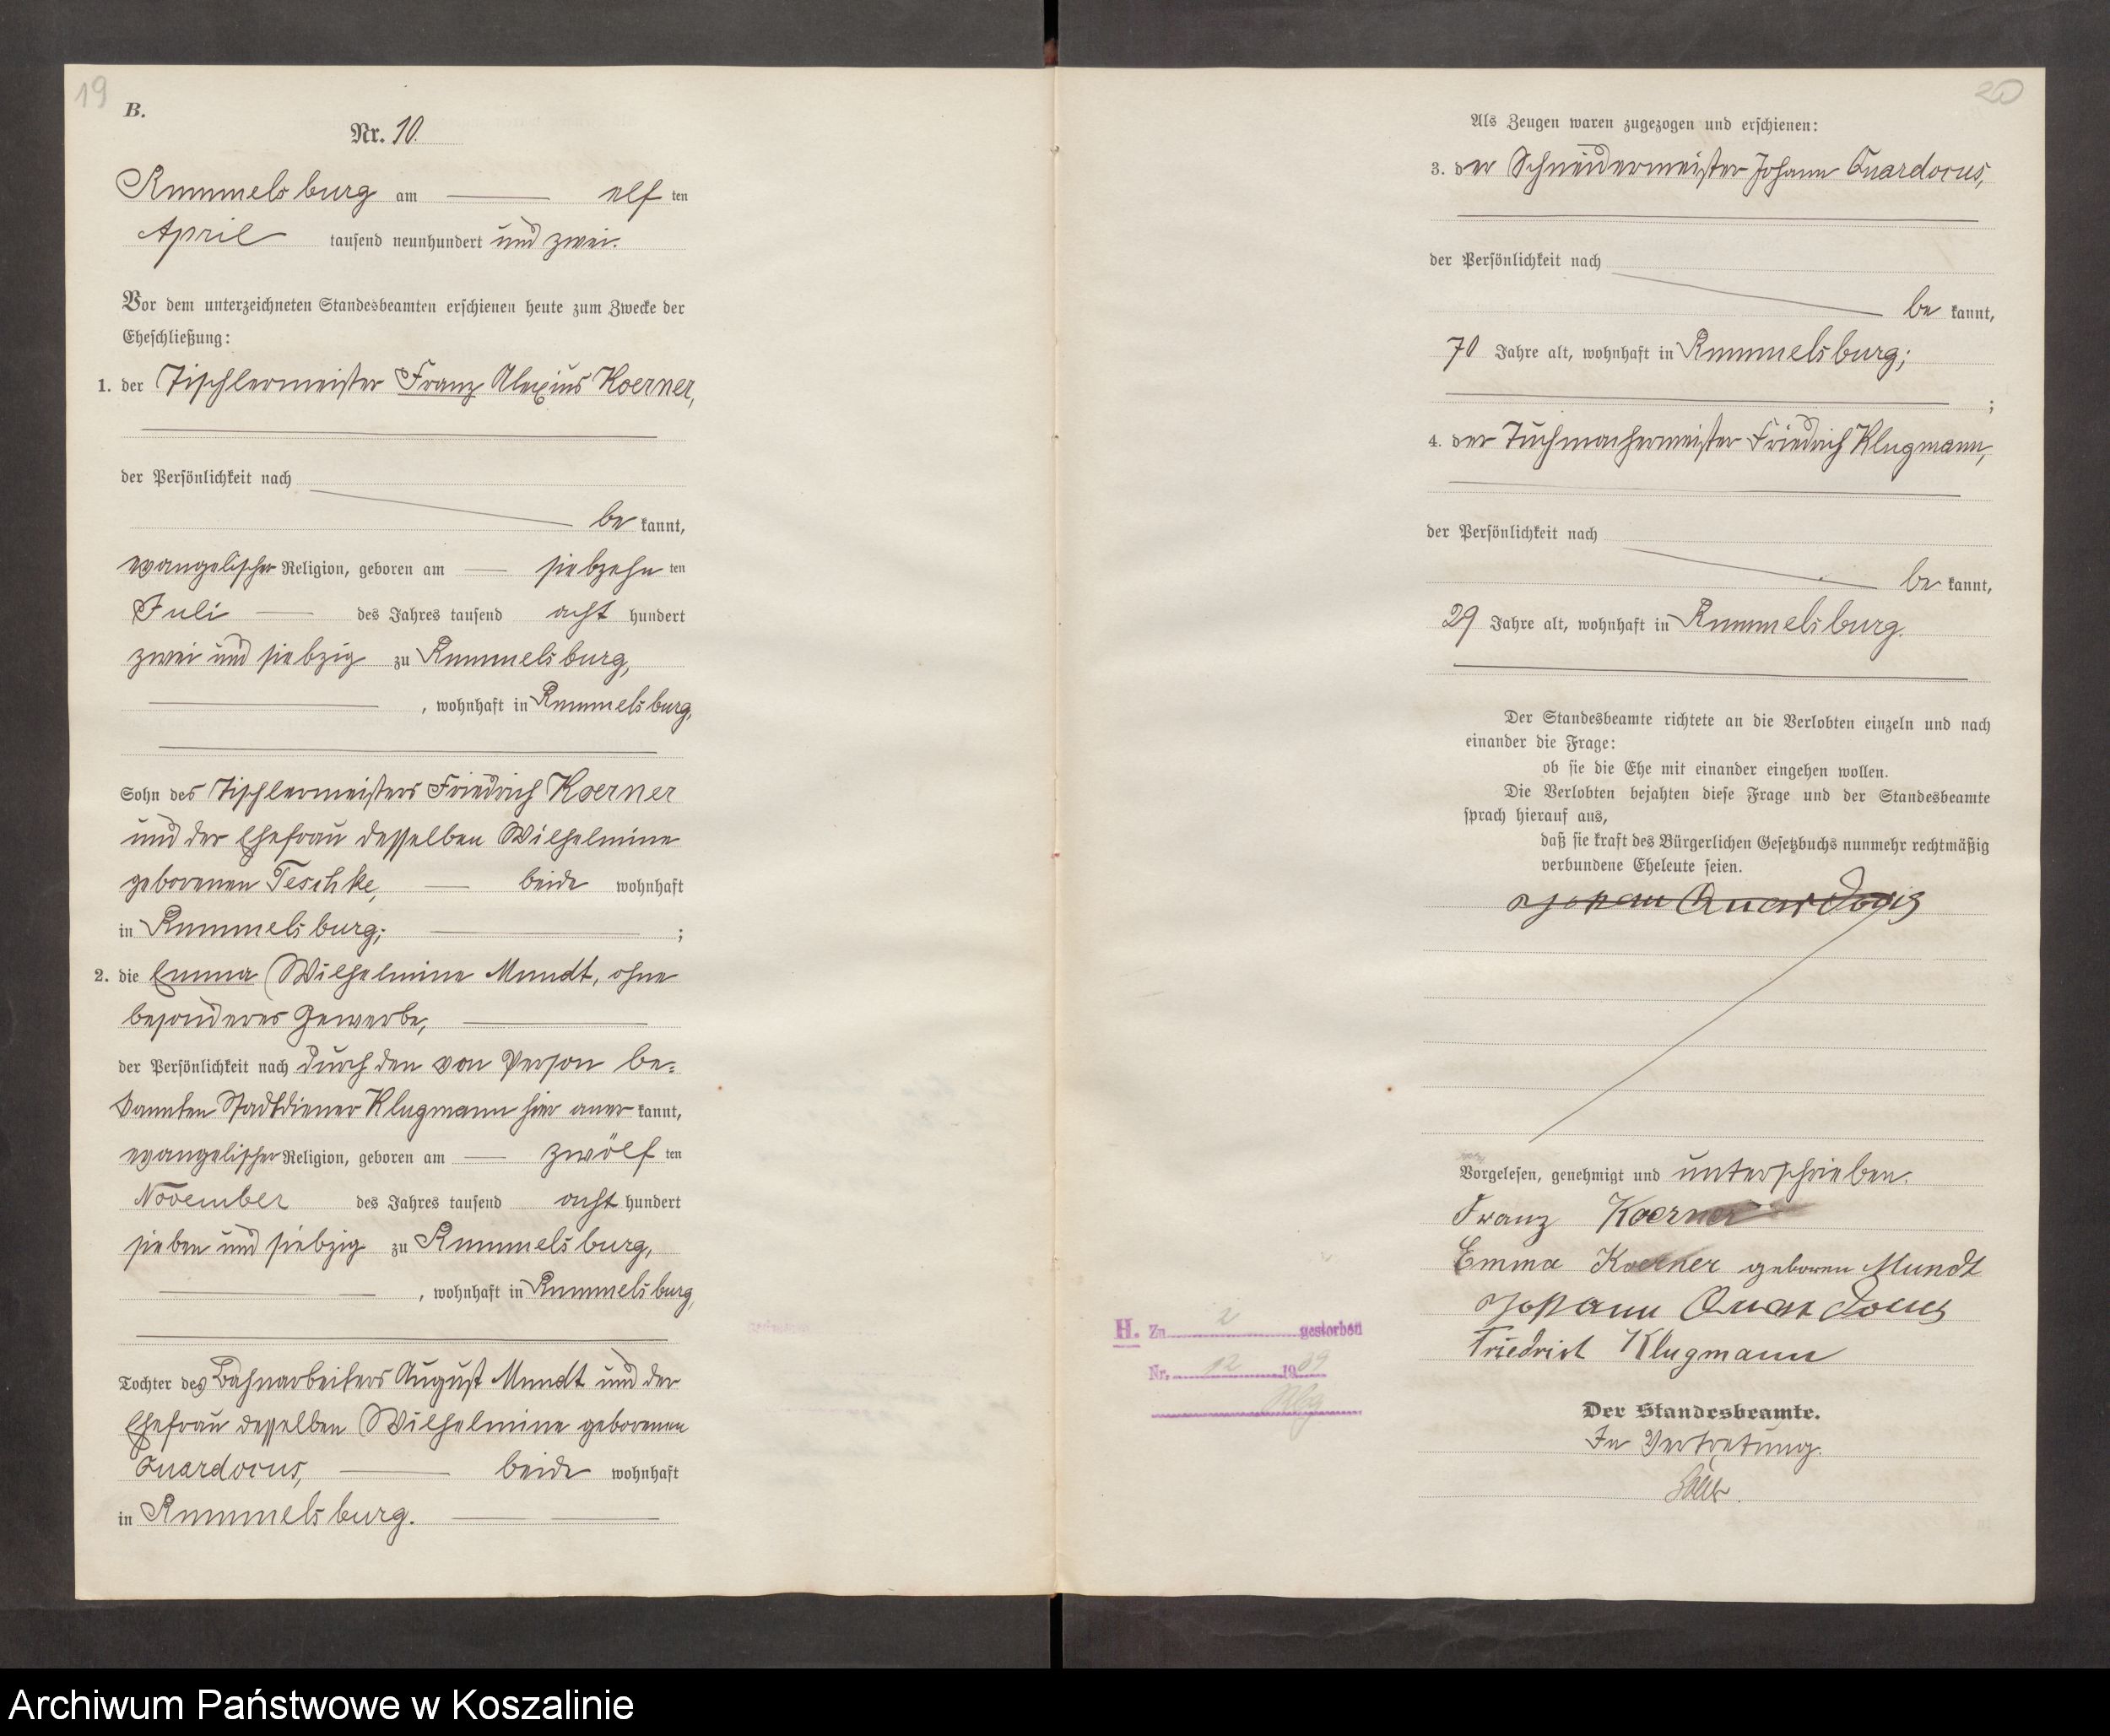 19
B.
Nr. 10.
Rummelsburg am elf ten
April tausend neunhundert und zwei.
Vor dem unterzeichneten Standesbeamten erschienen heute zum Zwecke der
Eheschließung:
1. der Tischlermeister Franz Alexius Koerner,
der Persönlichkeit nach
be kannt,
evangelischer Religion, geboren am siebzehn ten
Juli des Jahres tausend acht hundert
zwei und siebzig zu Rummelsburg,
, wohnhaft in Rummelsburg,
Sohn des Tischlermeisters Friedrich Koerner
und der Ehefrau desselben Wilhelmine
geborenen Teschke, beide wohnhaft
in Rummelsburg; ;
2. die Emma Wilhelmine Mundt, ohne
besonderes Gewerbe,
der Persönlichkeit nach durch den von Person be-
kannten Stadtdiener Klugmann hier aner kannt,
evangelischer Religion, geboren am zwölf ten
November des Jahres tausend acht hundert
sieben und siebzig zu Rummelsburg,
, wohnhaft in Rummelsburg,
Tochter des Bahnarbeiters August Mundt und der
Ehefrau desselben Wilhelmine geborenen
Quardocus, beide wohnhaft
in Rummelsburg.
20
Als Zeugen waren zugezogen und erschienen:
3. der Schneidermeister Johann Quardocus,
der Persönlichkeit nach
be kannt,
70 Jahre alt, wohnhaft in Rummelsburg;
;
4. der Tuchmachermeister Friedrich Klugmann,
der Persönlichkeit nach
be kannt,
29 Jahre alt, wohnhaft in Rummelsburg.
Der Standesbeamte richtete an die Verlobten einzeln und nach
einander die Frage:
ob sie die Ehe mit einander eingehen wollen.
Die Verlobten bejahten diese Frage und der Standesbeamte
sprach hierauf aus,
daß sie kraft des Bürgerlichen Gesetzbuchs nunmehr rechtmäßig
verbundene Eheleute seien.
Vorgelesen, genehmigt und unterschrieben.
Franz Koerner
Emma Koerner geboren Mundt
Johann Quardocus
Friedrich Klugmann
Der Standesbeamte.
In Vertretung.
H. Zu 2 gestorben
Nr. 12 1939
Archiwum Państwowe w Koszalinie